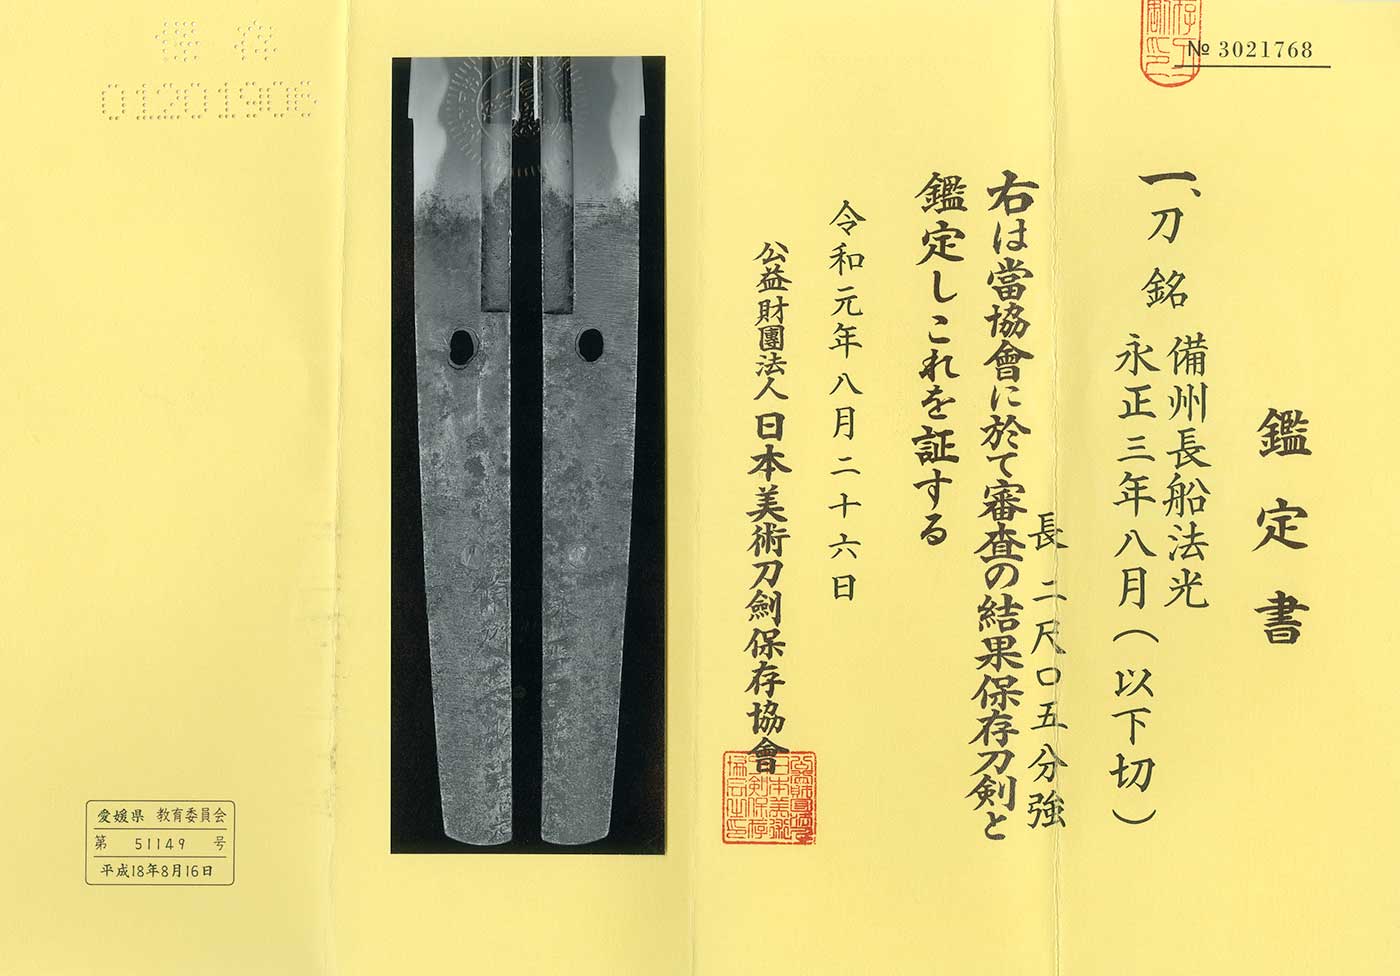 № 3021768
鑑定書
一、刀 銘 備州長船法光
永正三年八月(以下切)
長 二尺〇五分強
右は當協會に於て審査の結果保存刀剣と
鑑定しこれを証する
令和元年八月二十六日
公益財團法人 日本美術刀劍保存協會
保存
01201906
愛媛県 教育委員会
第 51149 号
平成18年8月16日